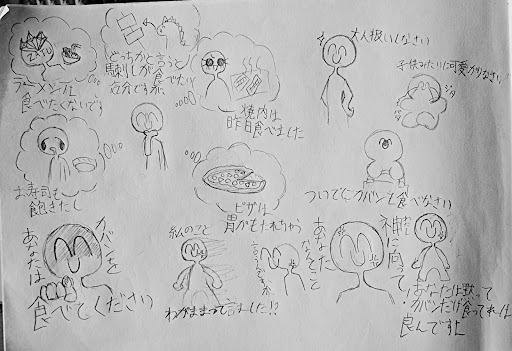 ラーメンは
食べたくないです
どっちかと言うと
馬刺しが食べたい
気分ですが、
焼肉は
昨日食べました
大人扱いしなさい
子供みたいに可愛がりなさい!
お寿司も
飽きたし
ピザは
胃がもたれちゃう
ついでにカバンも食べなさい
あなたは
カバンを
食べてください
私のこと
わがままって言ました!?
神に向って
あなた
なんてこと
あなたは黙って
カバンだけ食ってれば
良んですよ